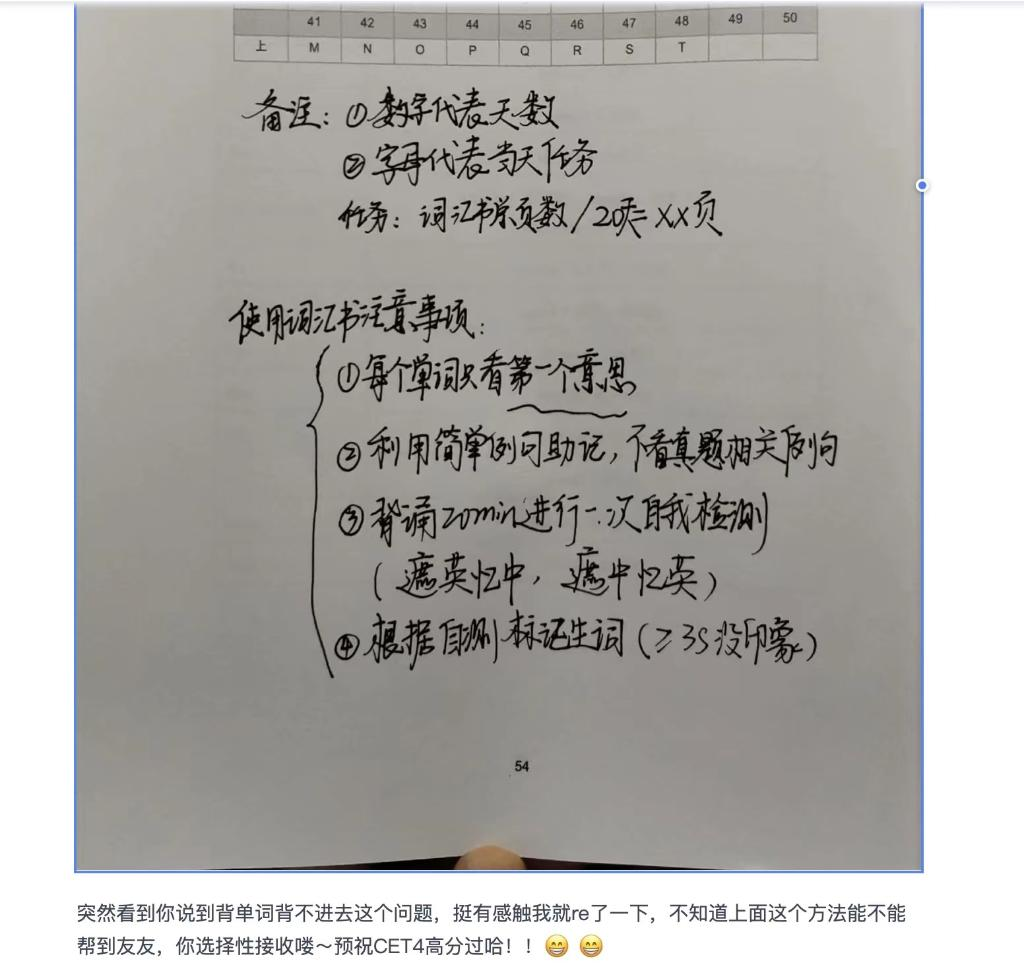 41 42 43 44 45 46 47 48 49 50
上 M N O P Q R S T
备注：①数字代表天数
②字母代表当天任务
任务：词汇书总页数/20天=XX页
使用词汇书注意事项：
①每个单词只看第一个意思
②利用简单例句助记，不看真题相关例句
③背诵20min进行一次自我检测
（遮英忆中，遮中忆英）
④根据自测标记生词（≥3S没印象）
54
突然看到你说到背单词背不进去这个问题，挺有感触我就re了一下，不知道上面这个方法能不能
帮到友友，你选择性接收喽～预祝CET4高分过哈！！😁 😁